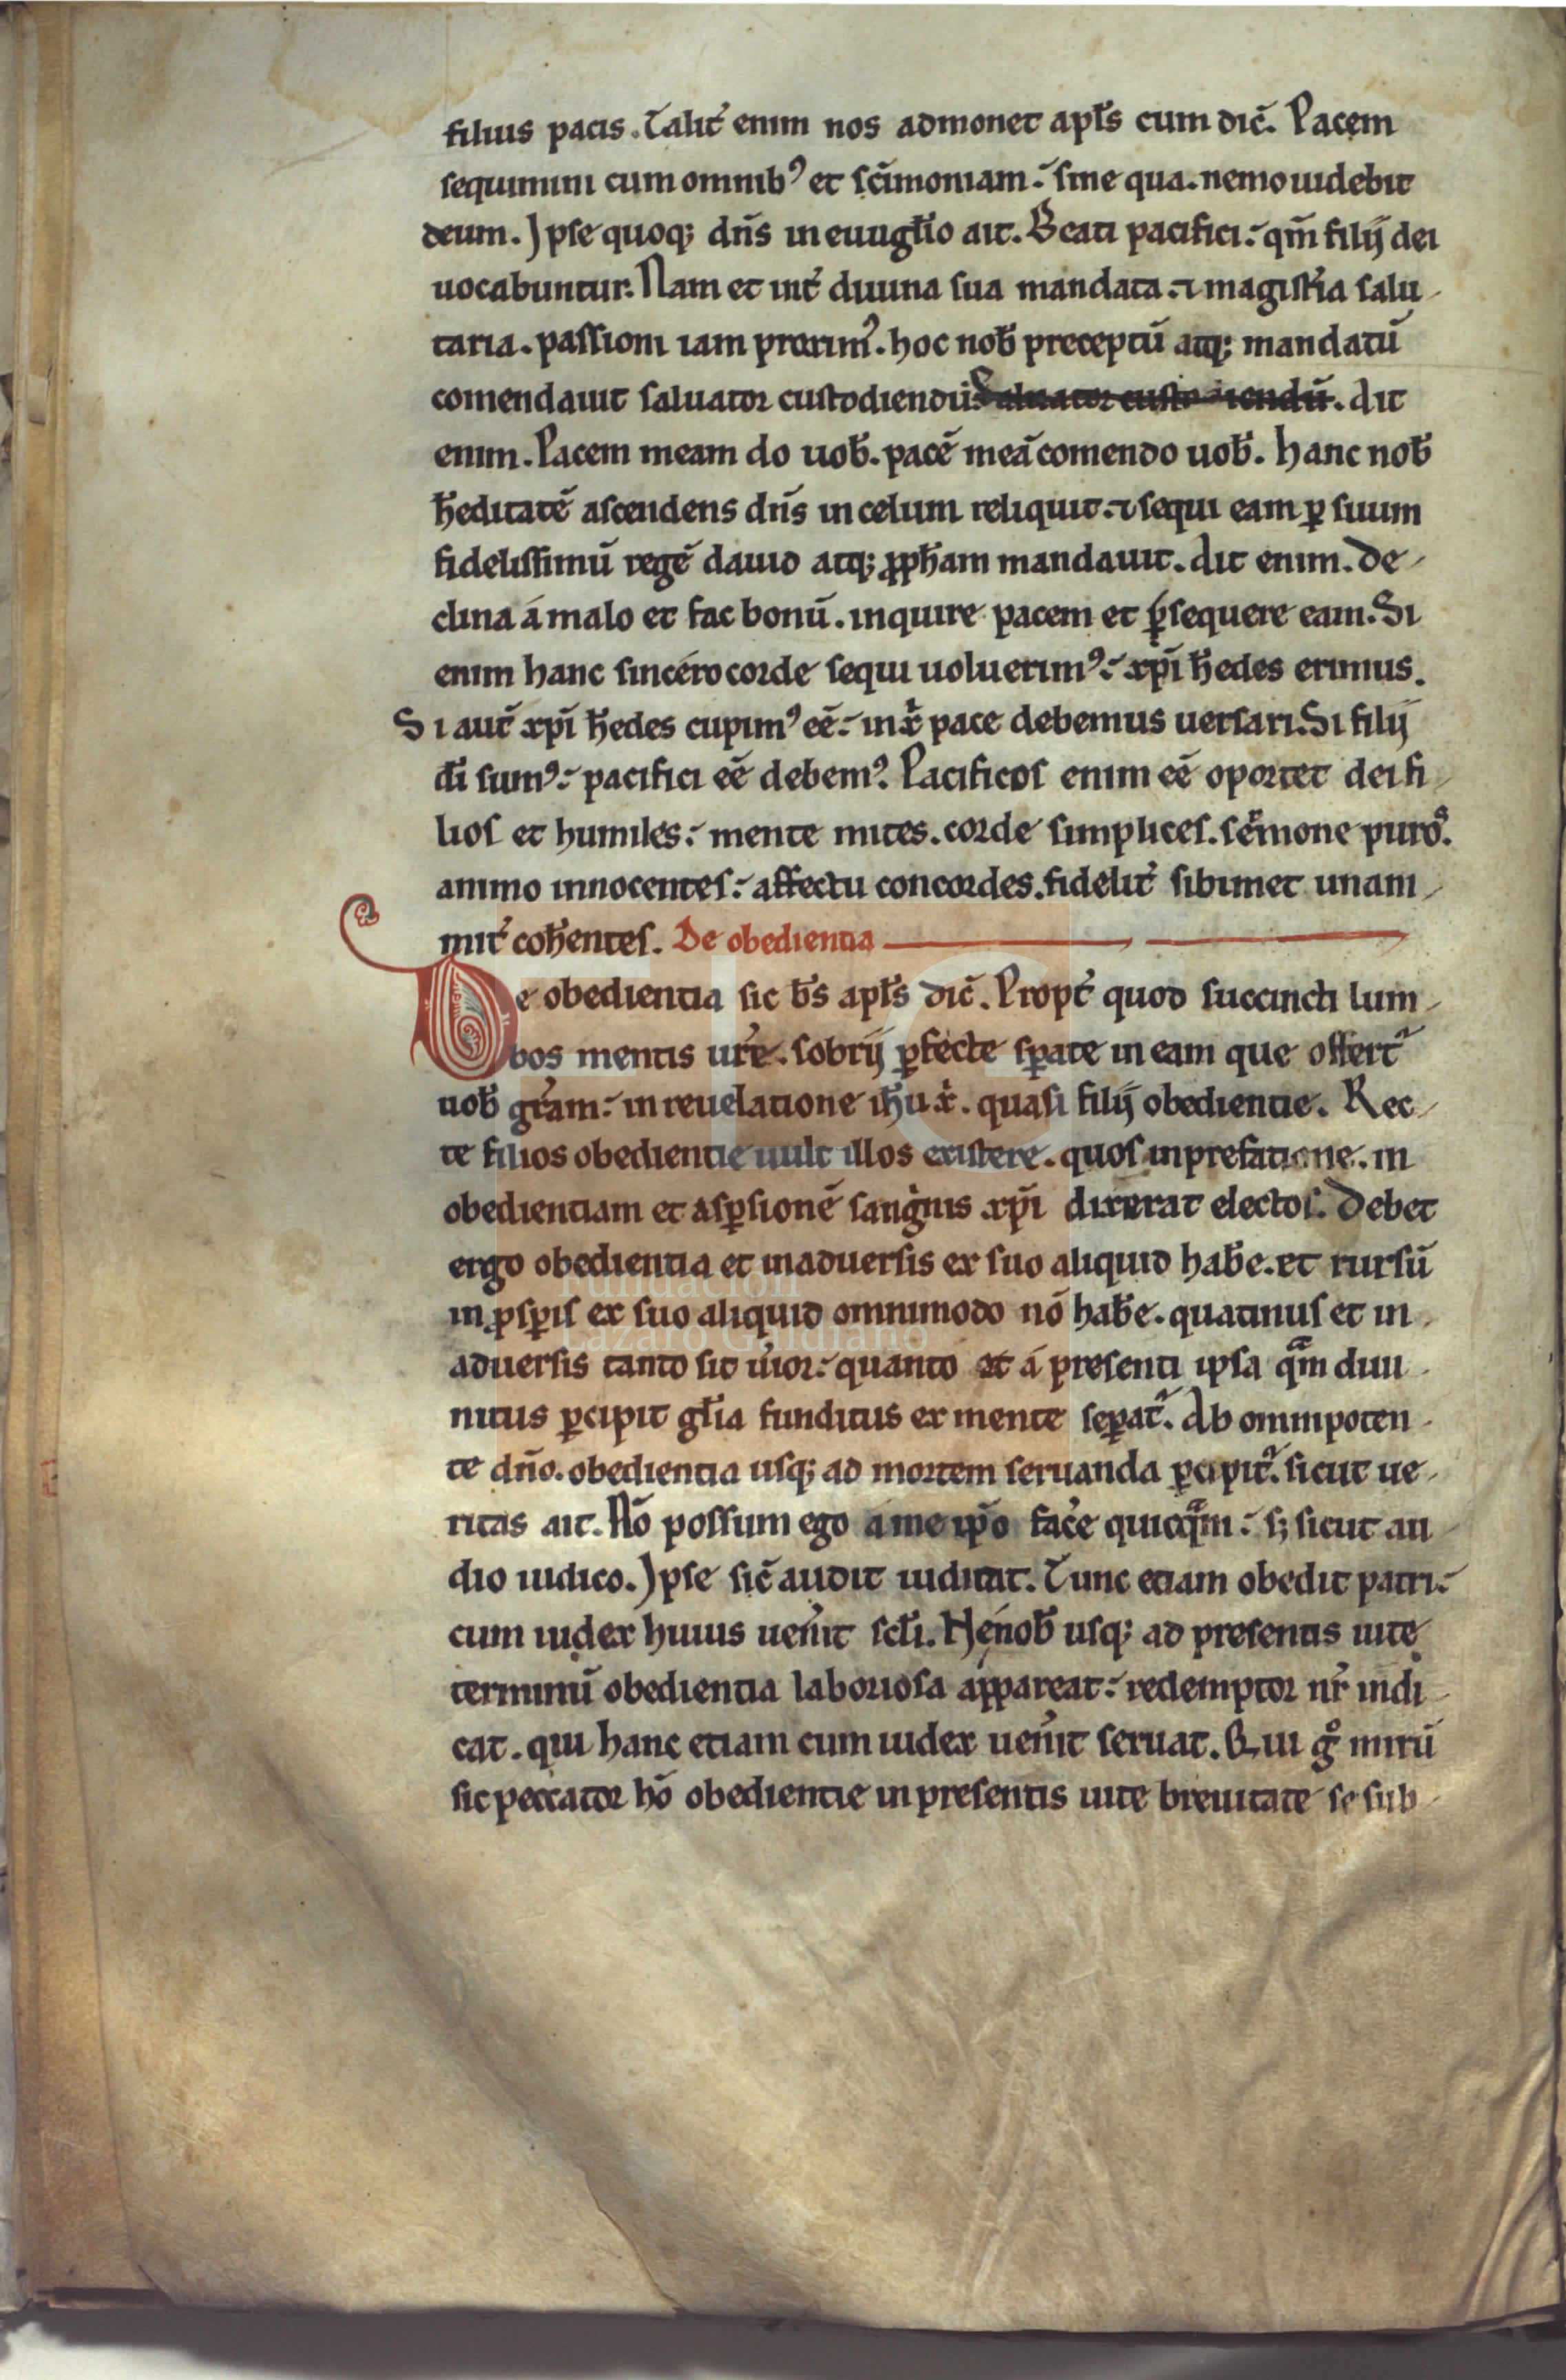 filius pacis. Talit̉ enim nos admonet apl̄s cum dic̄. Pacem
sequimini cum omnibꝰ et sc̄imoniam. sine qua. nemo uidebit
deum. Ipse quoq; dn̄s in euugl̄io ait. Beati pacifici. qm̄ filij dei
uocabuntur. Nam et int̉ diuina sua mandata. ⁊ magist̉ia salu
taria. passioni iam proximꝰ. hoc nob̄ preceptū atq; mandatū
comendauit saluator custodiendū. saluator custodiendū. Ait
enim. Pacem meam do uob̄. pacē meā comendo uob̄. hanc nob̄
h̄editatē ascendens dn̄s in celum reliquit. ⁊ sequi eam ꝑ suum
fidelissimū regē dauid atq; ꝓph̄am mandauit. Ait enim. De
clina á malo et fac bonū. inquire pacem et ꝑsequere eam. Si
enim hanc sincero corde sequi uoluerimꝰ. xp̄i h̄edes erimus.
Si aut̄ xp̄i h̄edes cupimꝰ eē. in xp̄i pace debemus uersari. Si filij
dī sumꝰ. pacifici eē debemꝰ. Pacificos enim eē oportet dei fi
lios et humiles. mente mites. corde simplices. sermone puros.
animo innocentes. affectu concordes. fidelit̉ sibimet unani
mit̉ coh̄entes. De obedientia
De obedientia sic b̄s apl̄s dic̄. Propt̉ quod succincti lum
bos mentis ur̄e. sobrij ꝑfecte sꝑate in eam que offert᷑
uob̄ gr̄am. in reuelatione ih̄u x̄. quasi filij obedientie. Rec
te filios obedientie uult illos existere. quos in prefatione. in
obedientiam et asꝑsionē sangͥnis xp̄i dixerat electos. Debet
ergo obedientia et in aduersis ex suo aliquid hab̄e. et rursū
in ꝓsꝑis ex suo aliquid omnimodo nō hab̄e. quatinus et in
aduersis tanto sit uīor. quanto et á presenti ipsa qᷓm diui
nitus ꝑcipit gl̄ia funditus ex mente seꝑat᷑. Ab omnipoten
te dn̄o. obedientia usq; ad mortem seruanda ꝑcipit᷑. sicut ue
ritas ait. Nō possum ego á me ip̄o fac̉e quicqᷓm. s; sicut au
dio iudico. Ipse sic̄ audit iudicat. Tunc etiam obedit patri.
cum iudex huius uen̉it scl̄i. Ne nob̄ usq; ad presentis uite
terminū obedientia laboriosa appareat. redemptor nr̄ indi
cat. qui hanc etiam cum iudex uen̉it seruat. Qui gͦ mirū
sic peccator hō obedientie in presentis uite breuitate se sub
Fundación
Lázaro Galdiano